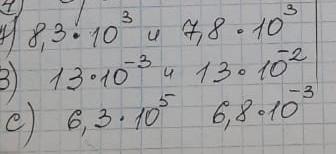 8,3 · 10³ и 7,8 · 10³
В) 13 · 10⁻³ и 13 · 10⁻²
с) 6,3 · 10⁵ 6,8 · 10⁻³